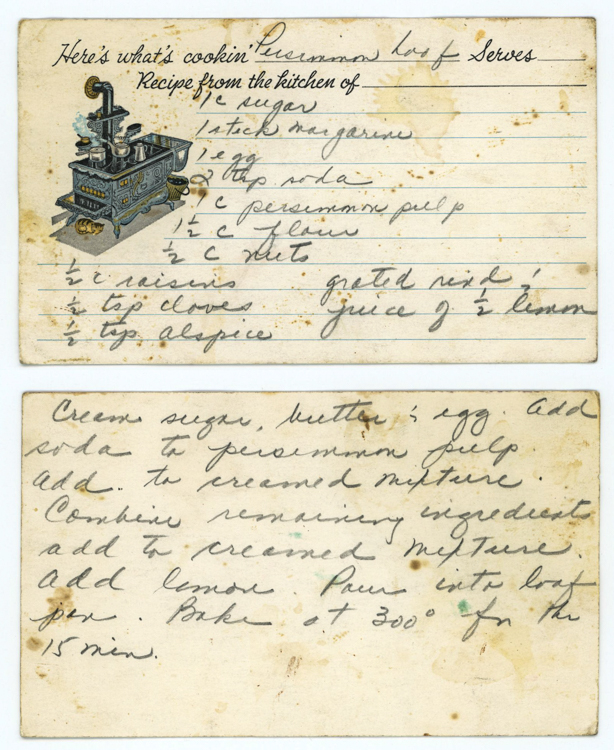 Here's what's cookin' Persimmon Loaf Serves
Recipe from the kitchen of
1 c sugar
1 stick margarine
1 egg
2 tsp soda
1 c persimmon pulp
1 1/2 c flour
1/2 c nuts
1/2 c raisins grated rind &
1/2 tsp cloves juice of 1/2 lemon
1/2 tsp alspice
Cream sugar, butter & egg. Add
soda to persimmon pulp
Add. to creamed mixture.
Combine remaining ingredients
add to creamed mixture.
Add lemon. Pour into loaf
pan. Bake at 300° for 1 hr
15 min.